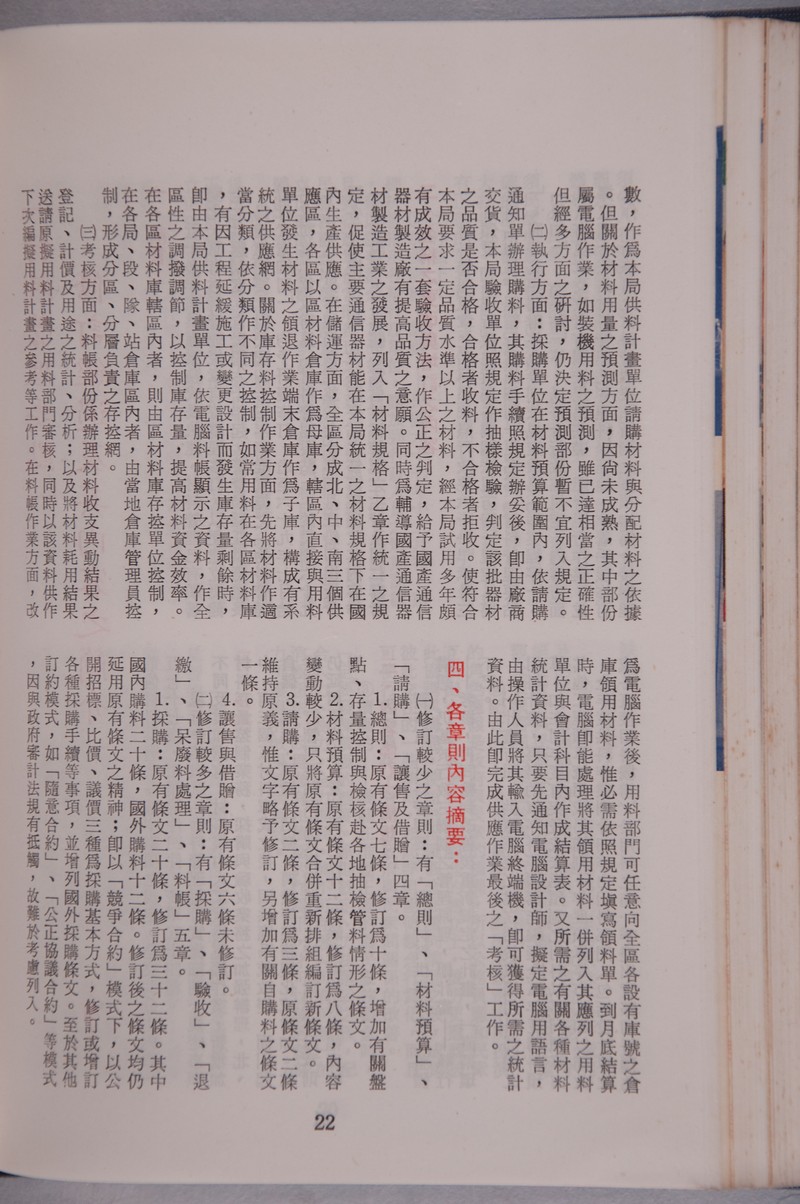 數，作爲本局供料計畫單位請購材料與分配材料之依據
。但關於材料用量之預測方面，因尙未成熟，其中部份
屬電腦作業，如裝機用料之預測，雖已達相當之正確性
但經多方面之硏討，仍決定預測部份暫不宜列入規定。
㈡執行方面：採購單位在材料預算範圍內，依請購
通知單辦理購料，其購料手續照規定辦妥後，卽由廠商
交貨，本局驗收單位照規定作抽樣檢驗，判定該批器材
之品質是否合格，合格者收料，不合格者拒收。使符合
本局要求一定品質水準以上之材料，經本局試用多年頗
有成效之一套驗收方法，作公正之判定，給予國產通信
器材製造廠有提高品質之意願。同時爲輔導國產通信器
材製造工業之發展，列入「材料規格」乙章作統一之規
定，促使主要通信器材能在本局統一之材料規格下在國
內生產供應。在儲運方面，全區分成北、中、南三個供
應區，各區以區材料倉庫作爲母庫，轄區內直接與用料
單位發生材料之領退作業端末倉庫作爲子庫，構成有系
統之供應網。關於庫存料控制作業方面，先將材料作適
當分類，依分類作不同之控制，如常用料在各區材料庫
，有因工程延緩施工或變更設計而發生庫存量剩餘時，
卽由本局供料計畫單位，依電腦料帳顯示之資料，作全
區性之調撥調節，以控制庫存量，提高材料資金效率。
在各區材料庫轄區內者，則由區材料庫存控單位控制，
在各局、段、隊、站倉庫區內者，由當地倉庫管理員控
制，形成分區、分層負責之存控網。
㈢考核方面：料帳部份係辦理材料收支異動結果之
登記、計價及用途之統計、分析；以及將材料耗用結果
送請原擬用料計畫之用料部門審核，同時以該資料供作
下次編擬用料計畫之參考等工作。在料帳作業方面，改
爲電腦作業後，用料部門可任意向全區各設有庫號之倉
庫領用材料，惟必需依照規定塡寫領料單。到月底結算
時，電腦卽能處理將其領用材料一併列入其應列之用料
單位與會計科目內作成結算表。又所需之有關各種材料
統計資料，只要先通知電腦設計師，擬定電腦用語言，
由操作人員將其輸入電腦終端機，卽可獲得所需之統計
資料。由此卽完成供應作業最後之「考核」工作。
四、各章則內容摘要：
㈠修訂較少之章則：有「總則」、「材料預算」、
「請購」、「讓售及借贈」四章。
1.總則：原有條文七條，修訂爲十條，增加有關盤
點、存量控制與檢核赴各地抽檢管料情形之條文。
2.材料預算：原有條文十二條，修訂爲八條，內容
變動較少，只將原有條文合併重新排組編訂新條文。
3.請購：原有條文二條，修訂爲三條，原條文二條
維持原義，惟文字略予修訂，另增加有關自購料之條文
一條。
4.讓售與借贈：原有條文六條未修訂。
㈡修訂較多之章則：有「採購」、「驗收」、「退
繳」、「呆廢料處理」、「料帳」五章。
1.採購：原有條文二十條，修訂爲三十二條。其中
國內購料二十條，國外購料十二條。修訂後之條文均仍
延用原有條文之精神；卽以「競爭合約」模式下，以公
開招標、比價、議價三種爲採購基本方式，修訂或增訂
各種採購手續等事項，並增列國外採購條文。至於其他
訂約模式，如「隨意合約」、「公正協議合約」等模式
，因與政府審計法規有抵觸，故難於考慮列入。
22